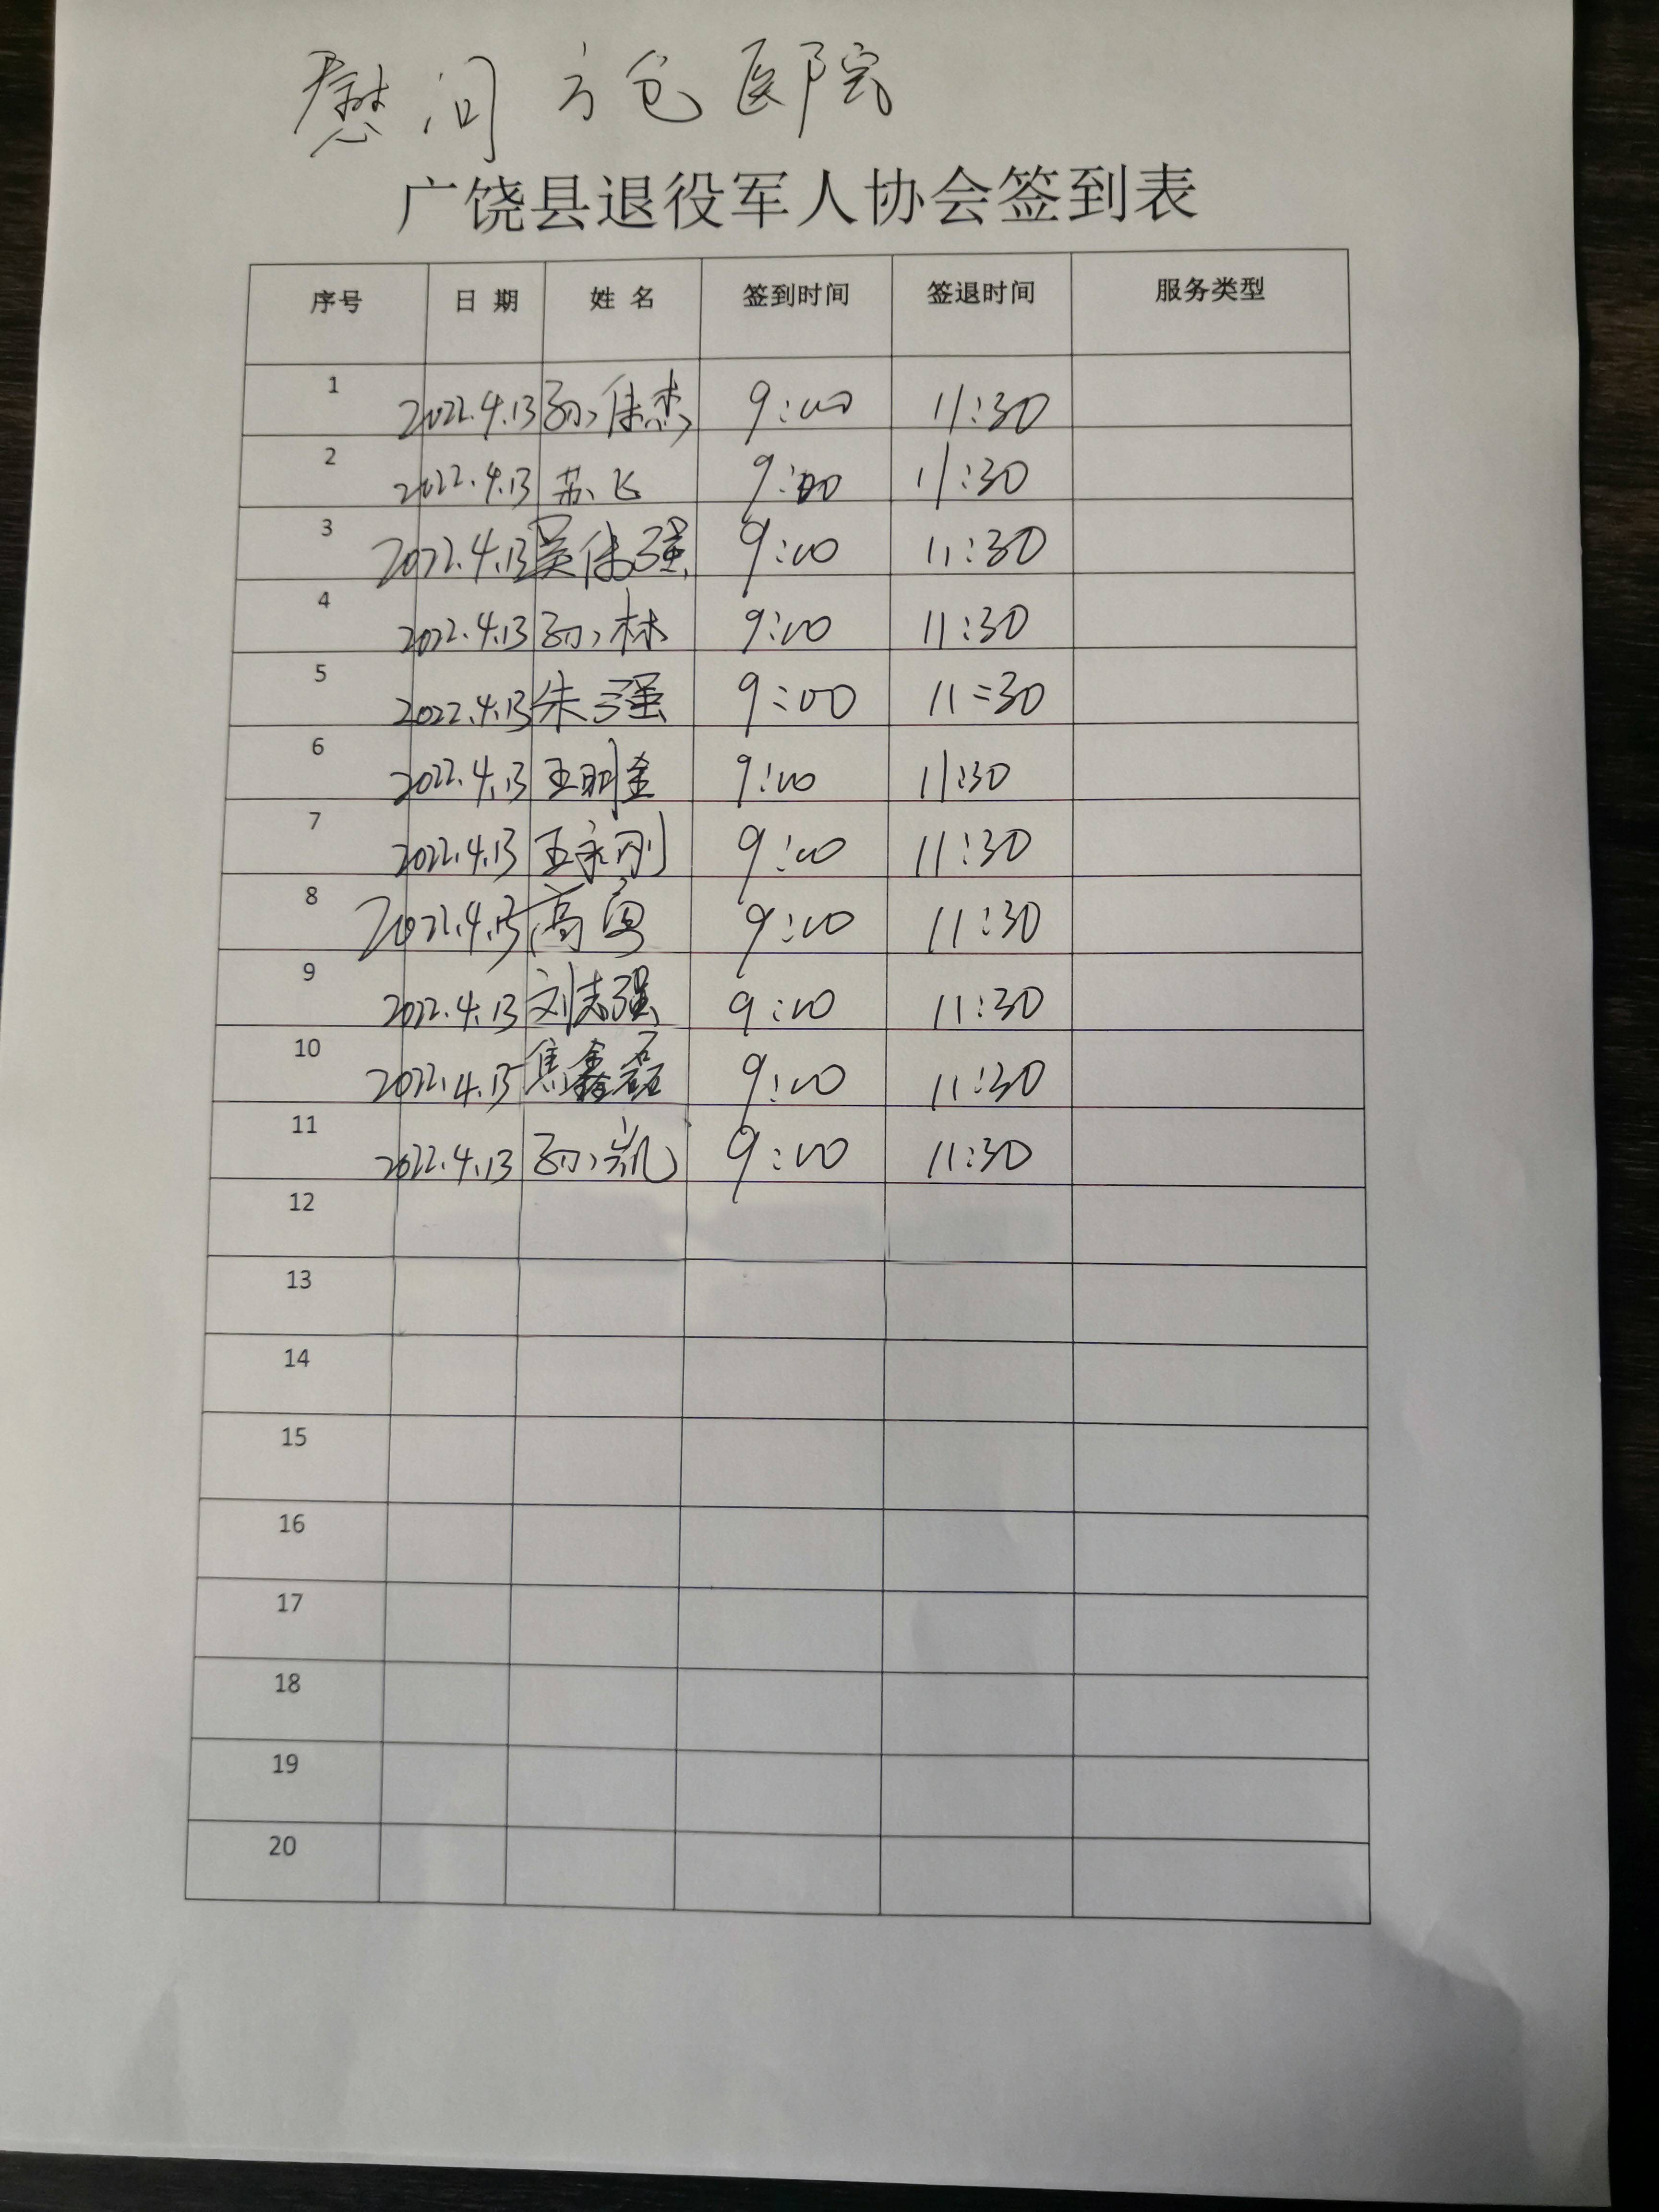 慰问方仓医院
广饶县退役军人协会签到表
序号 日期 姓名 签到时间 签退时间 服务类型
1 2022.4.13 孙杰 9:00 11:30
2 2022.4.13 苏飞 9:00 11:30
3 2022.4.13 吴伟强 9:00 11:30
4 2022.4.13 孙林 9:00 11:30
5 2022.4.13 朱强 9:00 11:30
6 2022.4.13 王明金 9:00 11:30
7 2022.4.13 王永刚 9:00 11:30
8 2022.4.13 高勇 9:00 11:30
9 2022.4.13 刘志强 9:00 11:30
10 2022.4.13 焦鑫磊 9:00 11:30
11 2022.4.13 孙凯 9:00 11:30
12
13
14
15
16
17
18
19
20